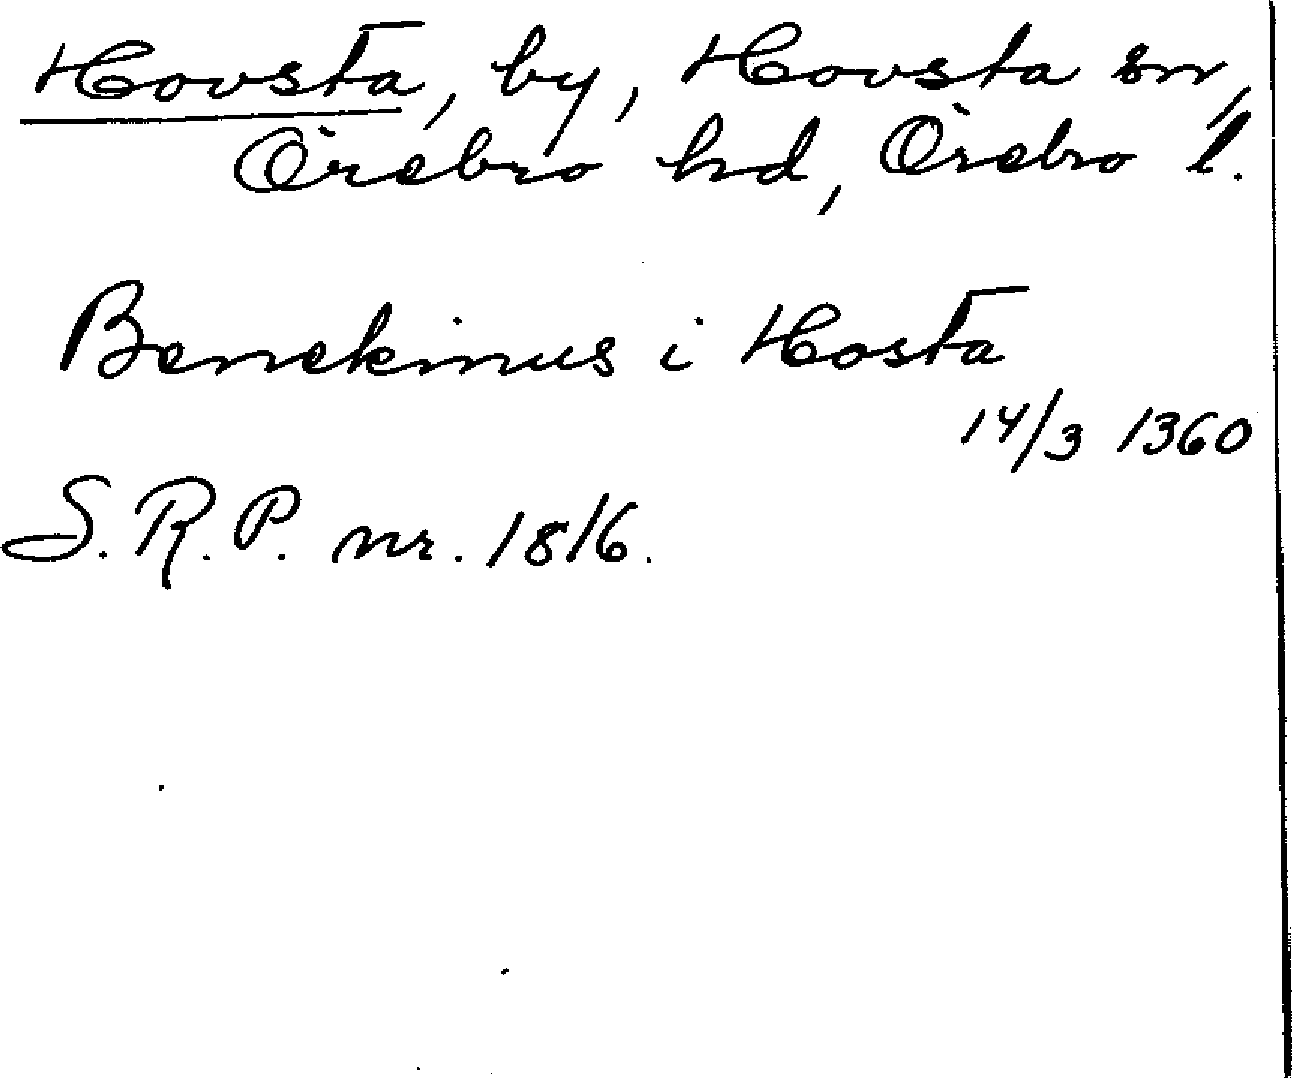 Hovsta, by, Hovsta sn,
Örebro hd, Örebro l.
Benekinus i Hosta
14/3 1360
S.R.P. nr. 1816.